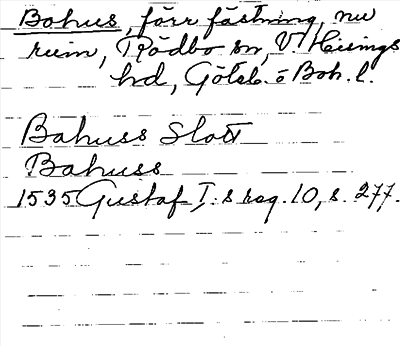 Bohus, förr fästning, nu
ruin, Rödbo sn, V. Hisings
hd, Göteb. o Boh. l.
Bahuss Slott
Bahuss
1535 Gustaf I:s reg. 10, s. 277.